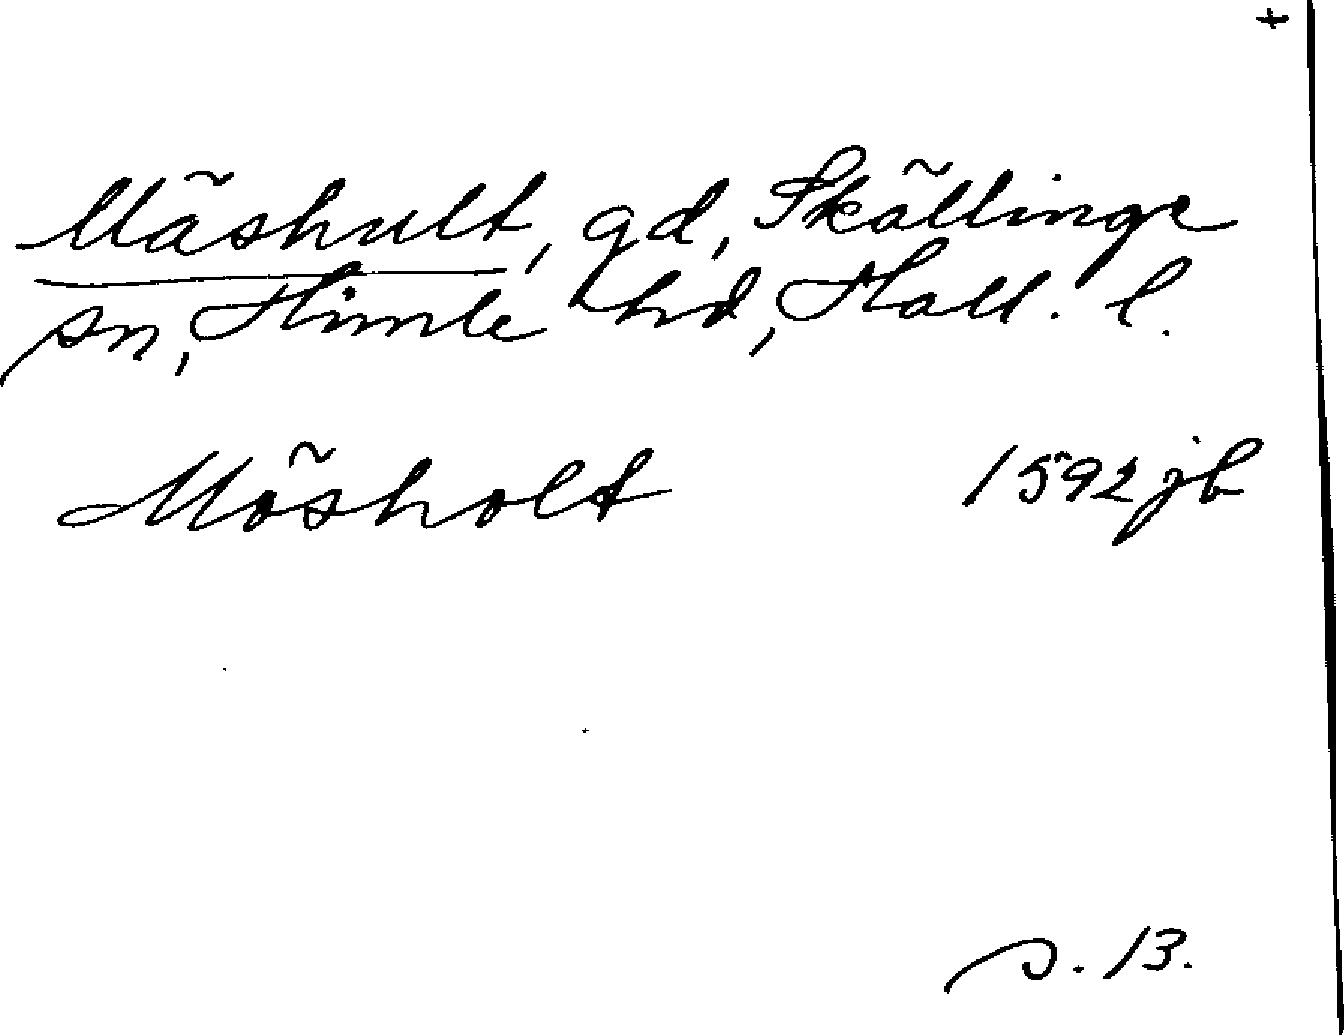 +
Mäshult, gd, Skällinge
sn, Himle hd, Hall. l.
Mösholt 1592 jb
s. 13.